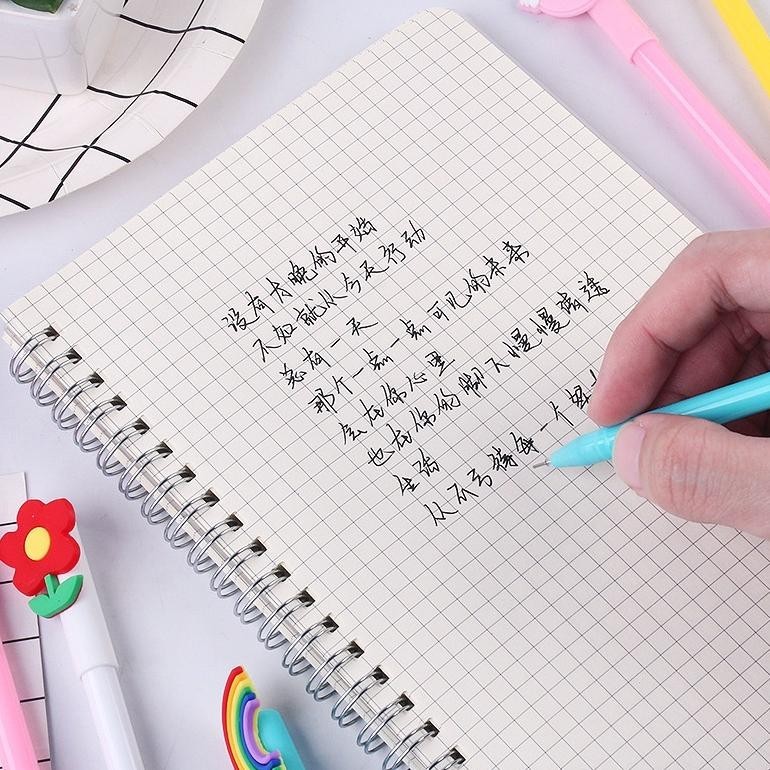 没有太晚的开始
不如就从今天行动
总有一天
那个一点一点可见的未来
会在你心里
也在你的脚下慢慢清透
生活
从不亏待每一个努